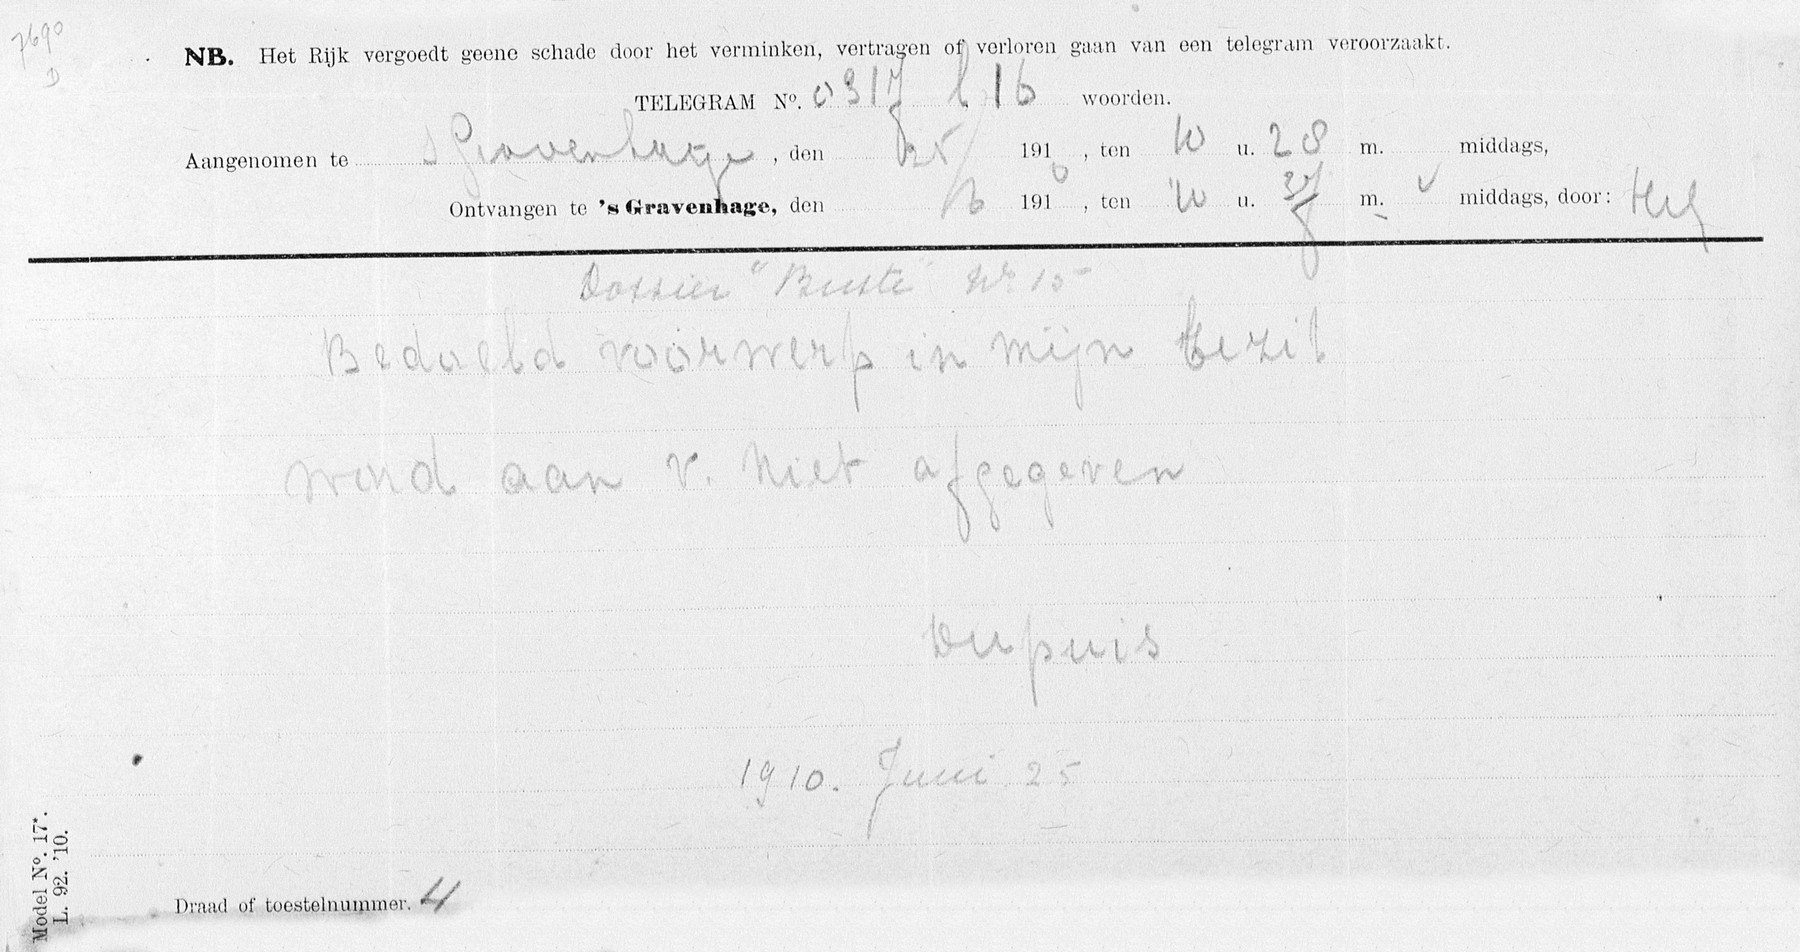 7690
D
NB. Het Rijk vergoedt geene schade door het verminken, vertragen of verloren gaan van een telegram veroorzaakt.
TELEGRAM No. 0317 16 woorden.
Aangenomen te s Gravenhage, den 25/ 191 , ten 10 u. 28 m. middags,
Ontvangen te 's Gravenhage, den /6 1910, ten 10 u. 37 m. middags, door:
Dossier "Buste" No 15
Bedoeld voorwerp in mijn bezit
word aan v. niet afgegeven
Dupuis
1910. Juni 25
Model No. 17*.
L. 92. '10.
Draad of toestelnummer. 4